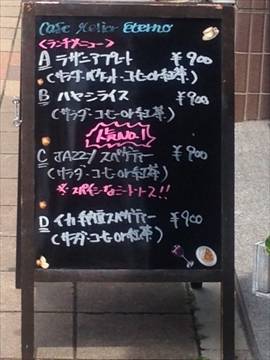 Cafe Atelier Eterno
<ランチメニュー>
A ラザニアプレート ¥900
(サラダ・バケット・コーヒーor紅茶)
B ハヤシライス ¥900
(サラダ・コーヒーor紅茶)
人気NO.1
C JAZZyスパゲティー ¥900
(サラダ・コーヒーor紅茶)
※スパイシーなミートソース!!
D イカ スパゲティー ¥900
(サラダ・コーヒーor紅茶)